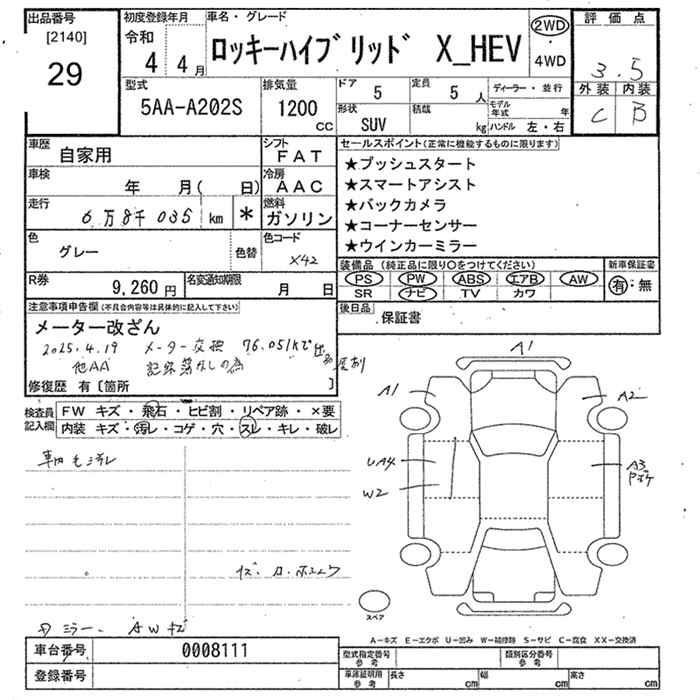 出品番号
[2140]
29
初度登録年月
令和
4 4月
車名・グレード
ロッキーハイブリッド X_HEV
2WD
・
4WD
評価点
3.5
外装 内装
C B
型式
5AA-A202S
排気量
1200
cc
ドア
5
定員
5 人
ディーラー・並行
モデル年式 年
形状
SUV
積載
kg
ハンドル 左・右
車歴
自家用
シフト
FAT
車検
年 月( 日)
冷房
AAC
走行
6万8千035 km
*
燃料
ガソリン
色
グレー
色替
色コード
X42
R券
9,260円
名変通知期限
月 日
セールスポイント(正常に機能するものに限ります)
★プッシュスタート
★スマートアシスト
★バックカメラ
★コーナーセンサー
★ウインカーミラー
装備品(純正品に限り○をつけてください)
PS PW ABS エアB AW
SR ナビ TV カワ
新車保証書
有・無
後日品
保証書
注意事項申告欄(不具合内容等は具体的に記入して下さい)
メーター改ざん
2025.4.19 メーター交換 76,051kmで
他AA 記録簿なしの為
修復歴 有〔箇所 〕
検査員記入欄
FW キズ・飛石・ヒビ割・リペア跡・×要
内装 キズ・汚レ・コゲ・穴・スレ・キレ・破レ
A1
A1
A2
UA4
W2
A3
スペア
ミラー. AWキズ
A-キズ E-エクボ U-凹み W-補修跡 S-サビ C-腐食 XX-交換済
車台番号
0008111
登録番号
型式指定番号
参考
類別区分番号
参考
車庫証明用
参考
長さ cm
幅 cm
高さ cm